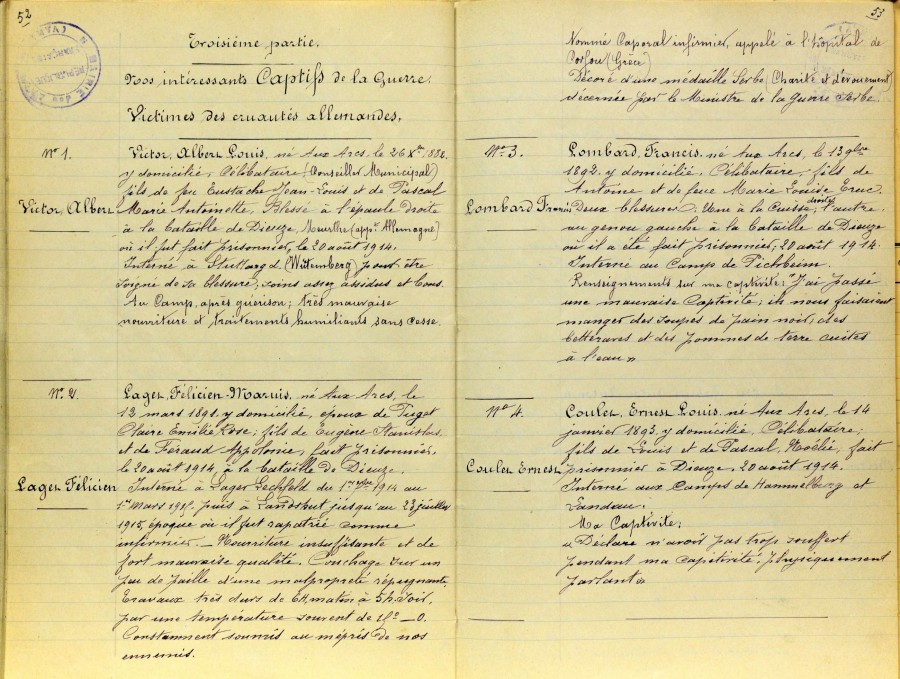 52
Troisième partie.
Nos intéressants Captifs de la Guerre.
Victimes des cruautés allemandes.
No 1.
Victor, Albert
Victor, Albert Louis, né Aux Arcs, le 26 Xbre 1882.
y domicilié, Célibataire, (Conseiller Municipal)
fils de feu Eustache Jean-Louis et de Pascal
Marie Antoinette. Blessé à l'épaule droite
à la bataille de Dieuze, Meurthe (appt Allemagne)
où il fut fait prisonnier, le 20 août 1914.
Interné à Stuttgard, (Wutemberg) pour être
soigné de sa blessure, soins assez assidus et bons.
Au Camp, après guérison; très mauvaise
nourriture et traitements humiliants sans cesse.
No 2.
Lager Félicien
Lager, Félicien-Maruis, né Aux Arcs, le
12 mars 1891. y domicilié, époux de Puget
Claire Emilie Rose; fils de Eugène Stanislas
et de Féraud Appolonie, fait prisonnier,
le 20 août 1914, à la bataille de Dieuze.
Interné à Lager Lechfeld du 1er 1914 au
1er Mars 1915. puis à Landshut jusqu'au 23 juillet
1915, époque où il fut rapatrié comme
infirmier. _ Nourriture insuffisante et de
fort mauvaise qualité. Couchage sur un
peu de paille d'une malpropreté répugnante.
Travaux très durs de matin à 5h. soir,
par une température souvent de
Constamment soumis au mépris de nos
ennemis.
53
Nommé Caporal infirmier, appelé à l'hôpital de
Corfou (Grèce)
Décoré d'une médaille Serbe (Charité et dévouement)
décernée par le Ministre de la Guerre Serbe.
No 3.
Lombard Francis
Lombard, Francis, né Aux Arcs, le 13 9bre
1892. y domicilié, Célibataire, fils de
Antoine et de feue Marie Louise
Deux blessures. Une à la Cuisse droite, l'autre
au genou gauche à la bataille de Dieuze
où il a été fait prisonnier, 20 août 1914.
Interné au Camp de
Renseignements sur ma captivité: "J'ai passé
une mauvaise Captivité; ils nous faisaient
manger des soupes de pain noir, des
betteraves et des pommes de terre cuites
à l'eau"
No 4.
Coulet Ernest
Coulet, Ernest Louis, né Aux Arcs, le 14
janvier 1893. y domicilié. Célibataire;
fils de Louis et de Pascal, Noélie, fait
prisonnier à Dieuze, 20 août 1914.
Interné aux Camps de Hammelburg et
Landau.
Ma Captivité;
« Déclare n'avoir pas trop souffert
pendant ma captivité, physiquement
parlant »